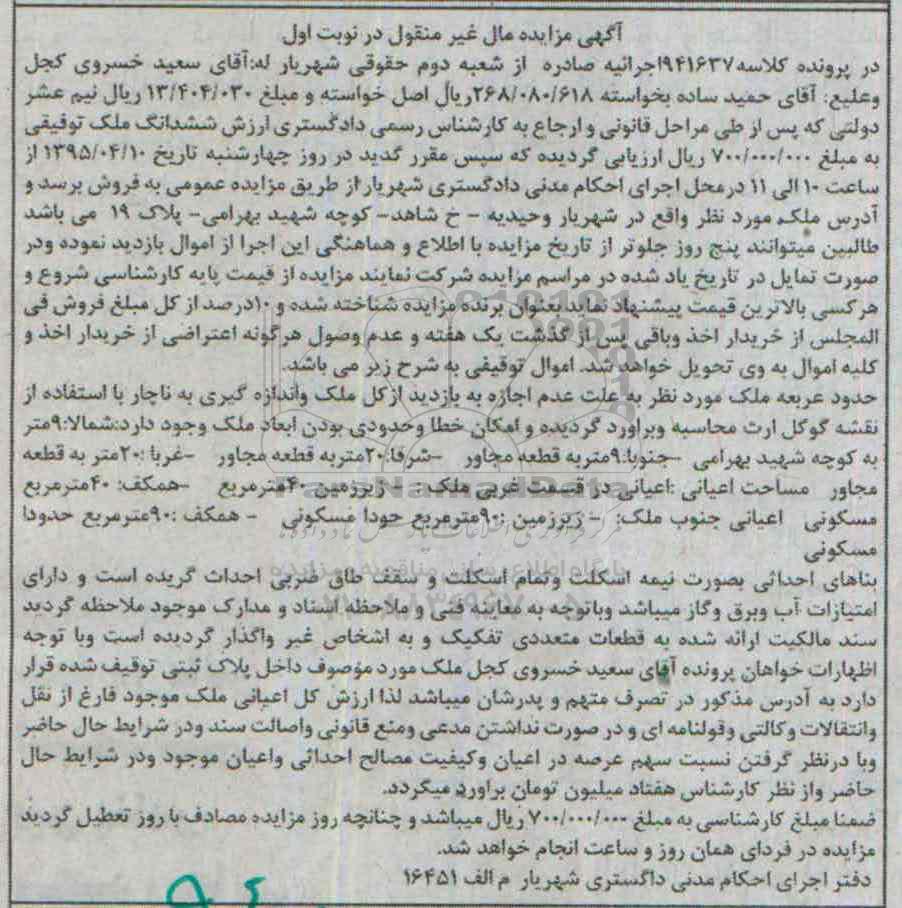 آگهی مزایده مال غیر منقول در نوبت اول
در پرونده کلاسه ۹۴۱۶۳۷اجرائیه صادره از شعبه دوم حقوقی شهریار له:آقای سعید خسروی کجل
وعلیع: آقای حمید ساده بخواسته ۲۶۸/۰۸۰/۶۱۸ریال اصل خواسته و مبلغ ۱۳/۴۰۴/۰۳۰ ریال نیم عشر
دولتی که پس از طی مراحل قانونی و ارجاع به کارشناس رسمی دادگستری ارزش ششدانگ ملک توفیقی
به مبلغ ۷۰۰/۰۰۰/۰۰۰ ریال ارزیابی گردیده که سپس مقرر گدید در روز چهارشنبه تاریخ ۱۳۹۵/۰۴/۱۰ از
ساعت ۱۰ الی ۱۱ درمحل اجرای احکام مدنی دادگستری شهریار از طریق مزایده عمومی به فروش برسد و
آدرس ملک مورد نظر واقع در شهریار وحیدیه - خ شاهد- کوچه شهید بهرامی- پلاک ۱۹ می باشد
طالبین میتوانند پنج روز جلوتر از تاریخ مزایده با اطلاع و هماهنگی این اجرا از اموال بازدید نموده ودر
صورت تمایل در تاریخ یاد شده در مراسم مزایده شرکت نمایند مزایده از قیمت پایه کارشناسی شروع و
هرکسی بالاترین قیمت پیشنهاد نماید بعنوان برنده مزایده شناخته شده و ۱۰درصد از کل مبلغ فروش فی
المجلس از خریدار اخذ وباقی پس از گذشت یک هفته و عدم وصول هرگونه اعتراضی از خریدار اخذ و
کلیه اموال به وی تحویل خواهد شد. اموال توقیفی به شرح زیر می باشد.
حدود عربعه ملک مورد نظر به علت عدم اجازه به بازدید ازکل ملک واندازه گیری به ناچار با استفاده از
نقشه گوگل ارث محاسبه وبراورد گردیده و امکان خطا وحدودی بودن ابعاد ملک وجود دارد:شمالا:۹متر
به کوچه شهید بهرامی -جنوبا:۹متربه قطعه مجاور -شرقا:۲۰متربه قطعه مجاور -غربا:۲۰متر به قطعه
مجاور مساحت اعیانی :اعیانی در قسمت غربی ملک : - زیرزمین ۴۰مترمربع -همکف: ۴۰مترمربع
مسکونی اعیانی جنوب ملک: - زیرزمین :۹۰مترمربع حودا مسکونی - همکف :۹۰مترمربع حدودا
مسکونی
بناهای احداثی بصورت نیمه اسکلت وتمام اسکلت و سقف طاق ضربی احداث گریده است و دارای
امتیازات آب وبرق وگاز میباشد وباتوجه به معاینه فنی و ملاحظه اسناد و مدارک موجود ملاحظه گردید
سند مالکیت ارائه شده به قطعات متعددی تفکیک و به اشخاص غیر واگذار گردیده است وبا توجه
اظهارات خواهان پرونده آقای سعید خسروی کجل ملک مورد موصوف داخل پلاک ثبتی توقیف شده قرار
دارد به آدرس مذکور در تصرف متهم و پدرشان میباشد لذا ارزش کل اعیانی ملک موجود فارغ از نقل
وانتقالات وکالتی وقولنامه ای و در صورت نداشتن مدعی ومنع قانونی واصالت سند ودر شرایط حال حاضر
وبا درنظر گرفتن نسبت سهم عرصه در اعیان وکیفیت مصالح احداثی واعیان موجود ودر شرایط حال
حاضر واز نظر کارشناس هفتاد میلیون تومان براورد میگردد.
ضمنا مبلغ کارشناسی به مبلغ ۷۰۰/۰۰۰/۰۰۰ ریال میباشد و چنانچه روز مزایده مصادف با روز تعطیل گردید
مزایده در فردای همان روز و ساعت انجام خواهد شد.
دفتر اجرای احکام مدنی داگستری شهریار م الف ۱۶۴۵۱